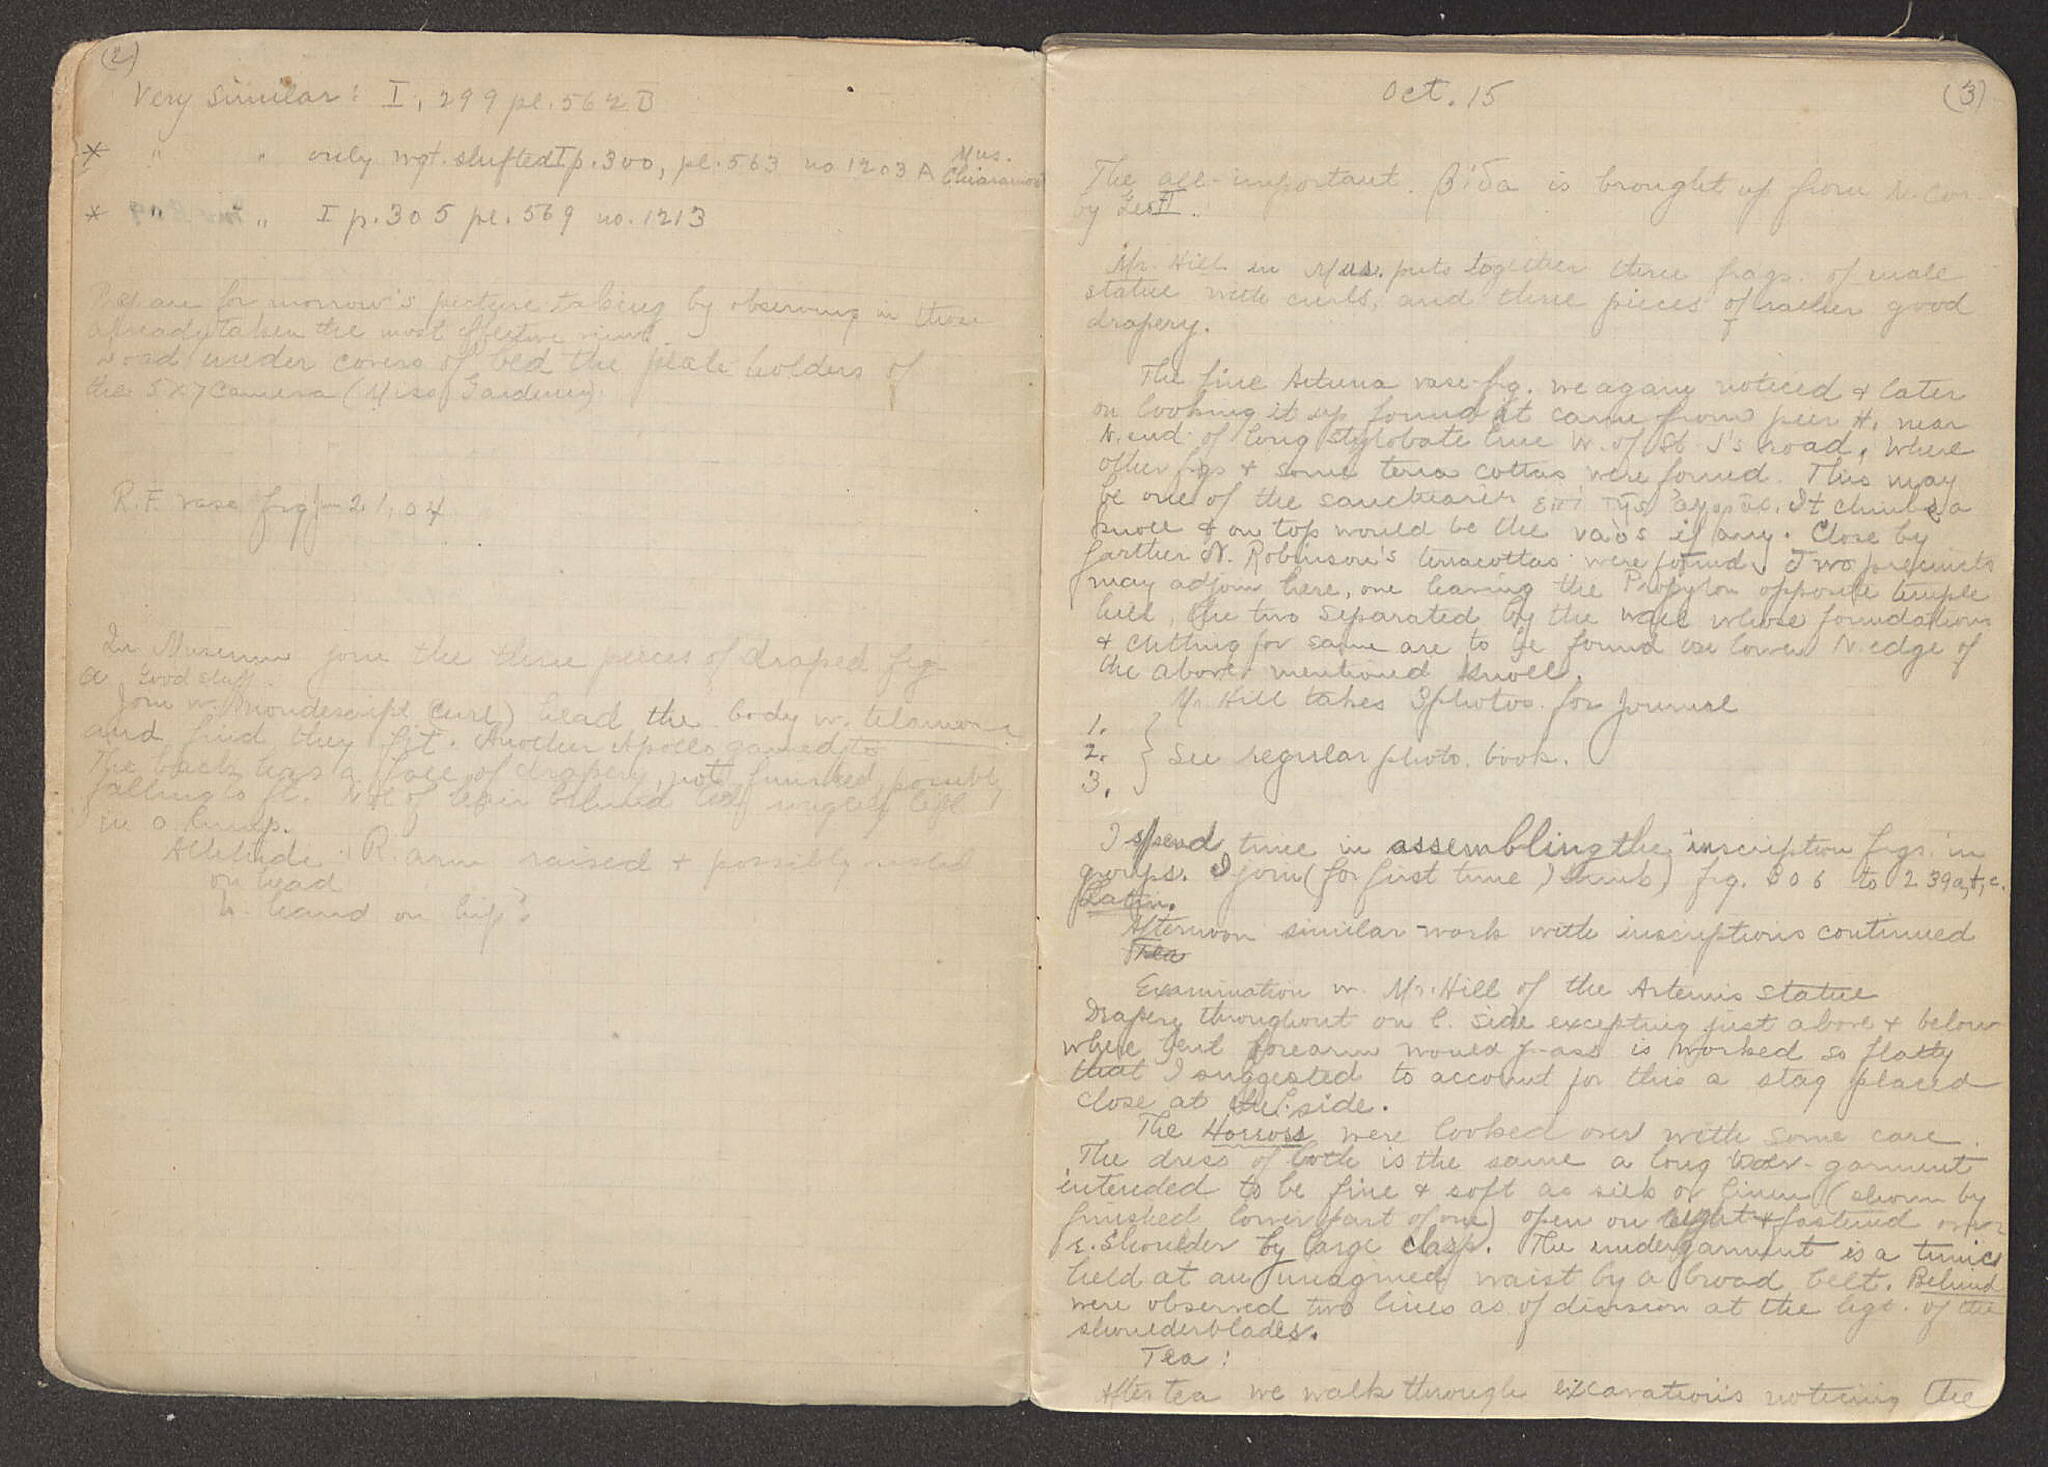 (2)
Very similar: I, 299 pl. 562 B
* " " only wgt. shifted I p. 300, pl. 563 no 1203 A Mus. Chiaramon
* " " I p. 305 pl. 569 no. 1213
Prepare for morrow's picture taking by observing in those
already taken the most effective views.
Load under covers of bed the plate holders of
the 5x7 camera (Miss Gardiner).
R.F. vase frg 21.04
In Museum join the three pieces of draped frg
a Good stuff.
Join w. (nondescript curl) head the body w. telamon
and find they fit. Another Apollo gained
The back has a of drapery, not finished, possibly
falling to ft. of hair behind left
in a lump.
Attitude: R. arm raised & possibly rested
on head
L. hand on hip?
Oct. 15
(3)
The all-important βίδα is brought up from N. Cor.
by
Mr. Hill in Mus. puts together three frags. of male
statue with curls, and three pieces of rather good
drapery.
The fine vase-frg. we again noticed & later
on looking it up found it came from pier H, near
N. end of long stylobate line W. of St J's road, where
other frgs & some terra cottas were found. This may
be one of the sanctuaries επί τῆς It climbs a
knoll & on top would be the ναός if any. Close by
farther N. Robinson's terracottas were found. Two precincts
may adjoin here, one having the Propylon opposite temple
hill, the two separated by the wall whose foundations
& cutting for same are to be found on lower N. edge of
the above mentioned knoll.
Mr Hill takes 3 photos for Journal
1.
2. } See regular photo. book.
3.
I spend time in assembling the inscription frgs. in
groups. I join (for first time, I think) frg. 306 to 239a, b, c.
Latin.
Afternoon similar work with inscriptions continued
Tea
Examination w. Mr. Hill of the Artemis statue
Drapery throughout on l. side excepting just above & below
where bent forearm would pass is worked so flatly
that I suggested to account for this a stag placed
close at the l. side.
The were looked over with some care.
The dress of both is the same a long over-garment
intended to be fine & soft as silk or linen (shown by
finished lower part of one) open on right & fastened over
r. shoulder by large clasp. The undergarment is a tunic
held at an imagined waist by a broad belt. Behind
were observed two lines as of division at the hgt. of the
shoulderblades.
Tea:
After tea we walk through excavations noticing the